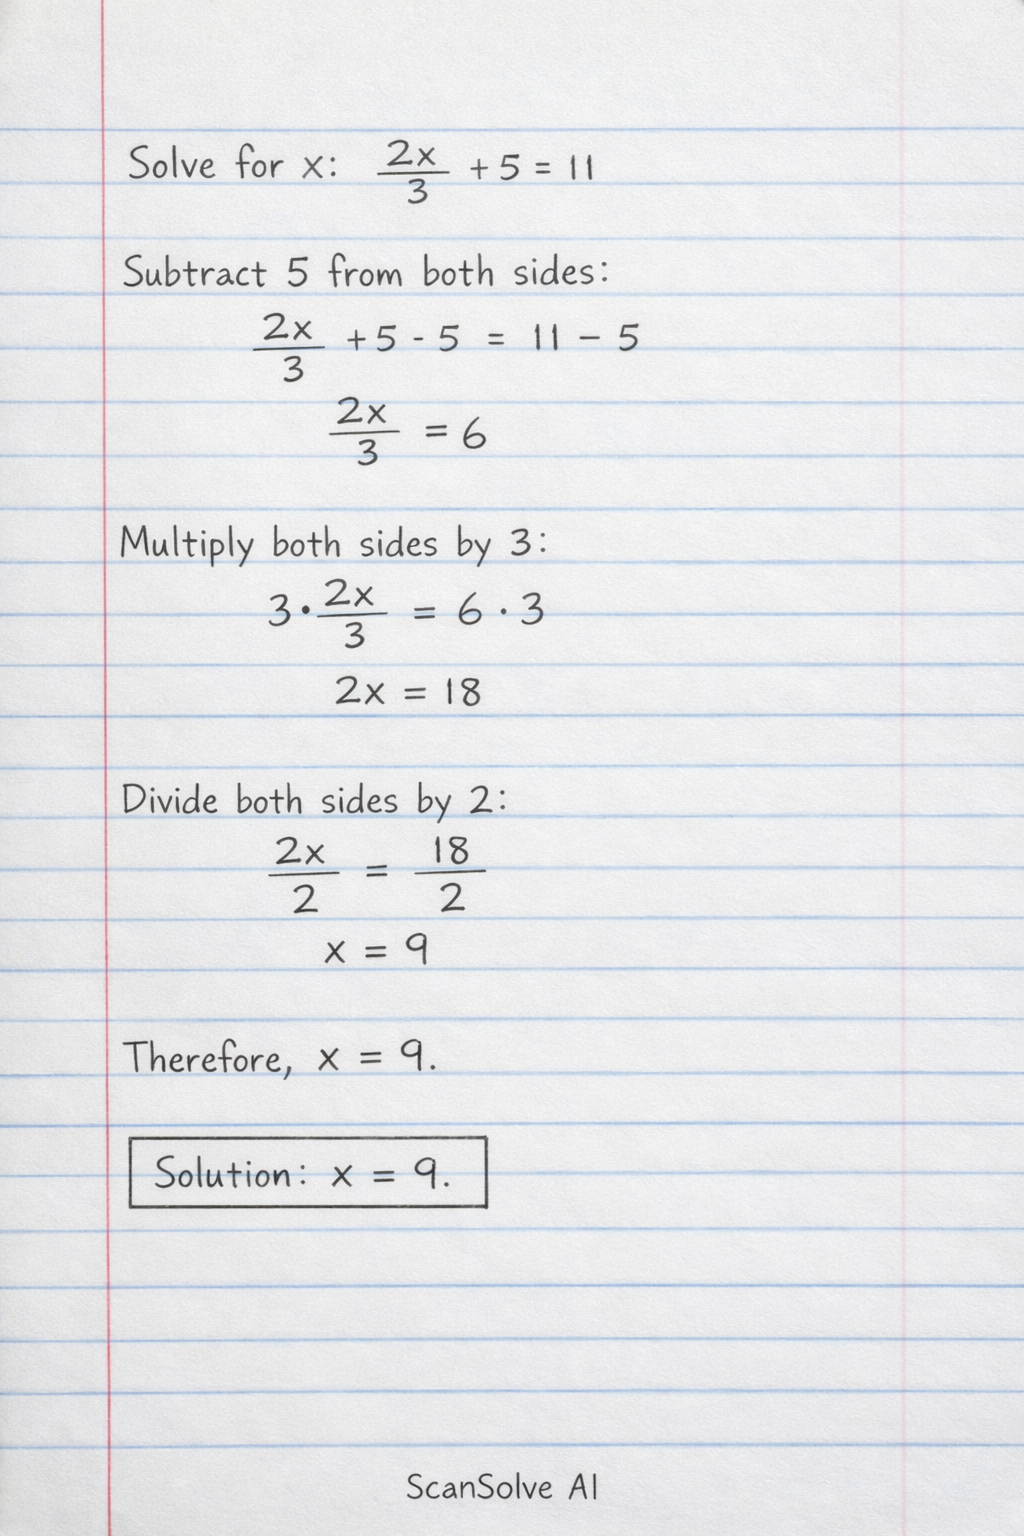 Solve for x: 2x/3 + 5 = 11
Subtract 5 from both sides:
2x/3 + 5 - 5 = 11 - 5
2x/3 = 6
Multiply both sides by 3:
3 · 2x/3 = 6 · 3
2x = 18
Divide both sides by 2:
2x/2 = 18/2
x = 9
Therefore, x = 9.
Solution: x = 9.
ScanSolve AI